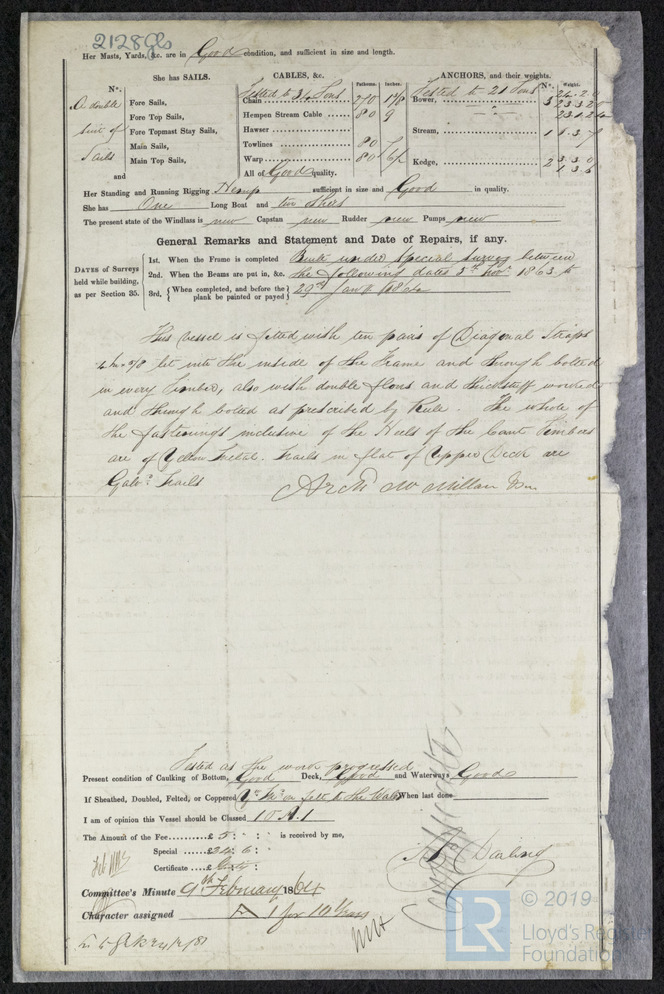 2128
Her Masts, Yards, &c. are in Good condition, and sufficient in size and length.
She has SAILS.
CABLES, &c.
ANCHORS, and their weights.
No.
Fathoms.
Inches.
No.
Weight.
A double
suit of
Sails
and
Fore Sails,
Fore Top Sails,
Fore Topmast Stay Sails,
Main Sails,
Main Top Sails,
Tested to 34 Tons
Chain 270
Hempen Stream Cable 80 9
Hawser
Towlines 80 7
Warp 80
All of Good quality.
Tested to 21 Tons
Bower, 3
Stream, 1
Kedge, 2
Her Standing and Running Rigging Hemp sufficient in size and Good in quality.
She has One Long Boat and two others
The present state of the Windlass is new Capstan new Rudder new Pumps new
General Remarks and Statement and Date of Repairs, if any.
DATES of Surveys
held while building,
as per Section 35.
1st. When the Frame is completed Built under Special survey between
2nd. When the Beams are put in, &c. the following dates 3rd Novr 1863 to
3rd, { When completed, and before the plank be painted or payed } 29th Jany 1864
This vessel is fitted with ten pairs of Diagonal Straps
let into the inside of the Frame and through bolted
in every Timber, also with double floors and thickstuff worked
and through bolted as prescribed by Rule. The whole of
the fastenings inclusive of the Heels of the Cant Timbers
are of Yellow Metal. Nails in flat of Upper Deck are
Galvd. Nails
Archd McMillan
Tested as the work progressed
Present condition of Caulking of Bottom, Good Deck, Good and Waterways Good
If Sheathed, Doubled, Felted, or Coppered Yw. Ml. on felt to the Wales When last done
I am of opinion this Vessel should be Classed 10 A.1
The Amount of the Fee 5 : : is received by me,
Special
Certificate
Darling
Committee's Minute 9th February 1864
Character assigned A 1 for 10 Years
LR
© 2019
Lloyd's Register
Foundation